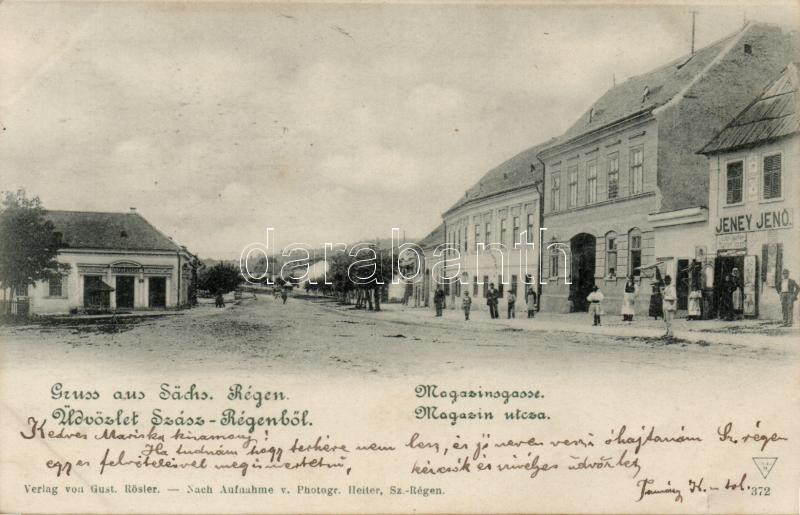 JENEY JENŐ.
darabanth.com
Gruss aus Sächs. Régen.
Üdvözlet Szász-Régenből.
Magazinsgasse.
Magazin utcza.
Kedves Mariska
Ha tudnám hogy terhére nem lesz, és jó neven veszi óhajtanám Sz. régen
egyes felvételével megismertetni,
kérésök és szivélyes üdvözlet
Verlag von Gust. Rösler. — Nach Aufnahme v. Photogr. Heiter, Sz.-Régen.
372